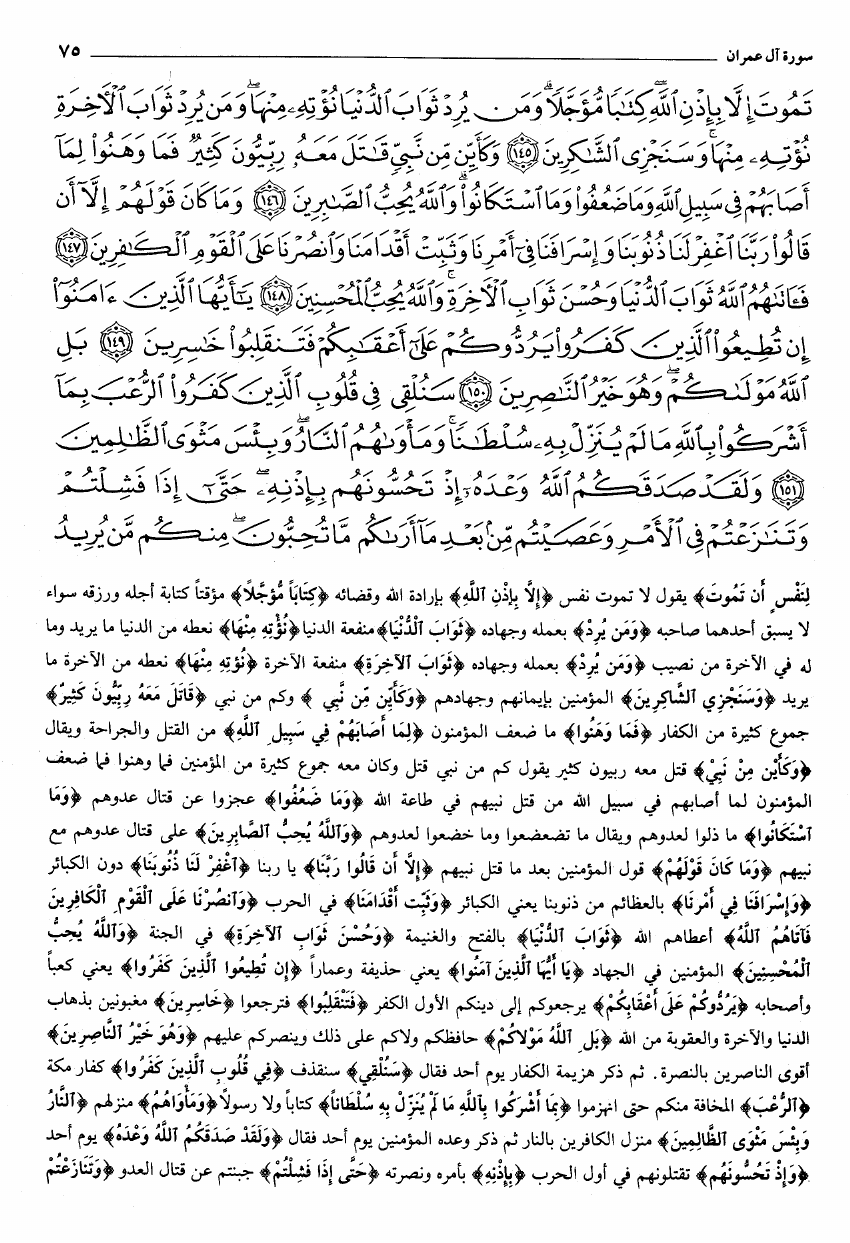 سورة آل عمران ٧٥
تَمُوتَ إِلَّا بِإِذْنِ ٱللَّهِ كِتَٰبًا مُّؤَجَّلًا ۗ وَمَن يُرِدْ ثَوَابَ ٱلدُّنْيَا نُؤْتِهِۦ مِنْهَا ۖ وَمَن يُرِدْ ثَوَابَ ٱلْأَخِرَةِ
نُؤْتِهِۦ مِنْهَا ۚ وَسَنَجْزِى ٱلشَّٰكِرِينَ ﴿١٤٥﴾ وَكَأَيِّن مِّن نَّبِىٍّ قَٰتَلَ مَعَهُۥ رِبِّيُّونَ كَثِيرٌ فَمَا وَهَنُوا۟ لِمَآ
أَصَابَهُمْ فِى سَبِيلِ ٱللَّهِ وَمَا ضَعُفُوا۟ وَمَا ٱسْتَكَانُوا۟ ۗ وَٱللَّهُ يُحِبُّ ٱلصَّٰبِرِينَ ﴿١٤٦﴾ وَمَا كَانَ قَوْلَهُمْ إِلَّآ أَن
قَالُوا۟ رَبَّنَا ٱغْفِرْ لَنَا ذُنُوبَنَا وَإِسْرَافَنَا فِىٓ أَمْرِنَا وَثَبِّتْ أَقْدَامَنَا وَٱنصُرْنَا عَلَى ٱلْقَوْمِ ٱلْكَٰفِرِينَ ﴿١٤٧﴾
فَـَٔاتَىٰهُمُ ٱللَّهُ ثَوَابَ ٱلدُّنْيَا وَحُسْنَ ثَوَابِ ٱلْأَخِرَةِ ۗ وَٱللَّهُ يُحِبُّ ٱلْمُحْسِنِينَ ﴿١٤٨﴾ يَٰٓأَيُّهَا ٱلَّذِينَ ءَامَنُوٓا۟
إِن تُطِيعُوا۟ ٱلَّذِينَ كَفَرُوا۟ يَرُدُّوكُمْ عَلَىٰٓ أَعْقَٰبِكُمْ فَتَنقَلِبُوا۟ خَٰسِرِينَ ﴿١٤٩﴾ بَلِ
ٱللَّهُ مَوْلَىٰكُمْ ۖ وَهُوَ خَيْرُ ٱلنَّٰصِرِينَ ﴿١٥٠﴾ سَنُلْقِى فِى قُلُوبِ ٱلَّذِينَ كَفَرُوا۟ ٱلرُّعْبَ بِمَآ
أَشْرَكُوا۟ بِٱللَّهِ مَا لَمْ يُنَزِّلْ بِهِۦ سُلْطَٰنًا ۖ وَمَأْوَىٰهُمُ ٱلنَّارُ ۚ وَبِئْسَ مَثْوَى ٱلظَّٰلِمِينَ
﴿١٥١﴾ وَلَقَدْ صَدَقَكُمُ ٱللَّهُ وَعْدَهُۥٓ إِذْ تَحُسُّونَهُم بِإِذْنِهِۦ ۖ حَتَّىٰٓ إِذَا فَشِلْتُمْ
وَتَنَٰزَعْتُمْ فِى ٱلْأَمْرِ وَعَصَيْتُم مِّنۢ بَعْدِ مَآ أَرَىٰكُم مَّا تُحِبُّونَ ۚ مِنكُم مَّن يُرِيدُ
لِنَفْسٍ أَن تَمُوتَ﴾ يقول لا تموت نفس ﴿إِلَّا بِإِذْنِ ٱللَّهِ﴾ بإرادة الله وقضائه ﴿كِتَاباً مُّؤَجَّلاً﴾ مؤقتاً كتابة أجله ورزقه سواء
لا يسبق أحدهما صاحبه ﴿وَمَن يُرِدْ﴾ بعمله وجهاده ﴿ثَوَابَ ٱلدُّنْيَا﴾ منفعة الدنيا ﴿نُؤْتِهِ مِنْهَا﴾ نعطه من الدنيا ما يريد وما
له في الآخرة من نصيب ﴿وَمَن يُرِدْ﴾ بعمله وجهاده ﴿ثَوَابَ ٱلآخِرَةِ﴾ منفعة الآخرة ﴿نُؤتِهِ مِنْهَا﴾ نعطه من الآخرة ما
يريد ﴿وَسَنَجْزِي ٱلشَّاكِرِينَ﴾ المؤمنين بإيمانهم وجهادهم ﴿وَكَأَيِّن مِّن نَّبِي﴾ وكم من نبي ﴿قَاتَلَ مَعَهُ رِبِّيُّونَ كَثِيرٌ﴾
جموع كثيرة من الكفار ﴿فَمَا وَهَنُوا﴾ ما ضعف المؤمنون ﴿لِمَا أَصَابَهُمْ فِي سَبِيلِ ٱللَّهِ﴾ من القتل والجراحة ويقال
﴿وَكَأَيِّن مِنْ نَبِيٍّ﴾ قتل معه ربيون كثير يقول كم من نبي قتل وكان معه جموع كثيرة من المؤمنين فما وهنوا فما ضعف
المؤمنون لما أصابهم في سبيل الله من قتل نبيهم في طاعة الله ﴿وَمَا ضَعُفُوا﴾ عجزوا عن قتال عدوهم ﴿وَمَا
ٱسْتَكَانُوا﴾ ما ذلوا لعدوهم ويقال ما تضعضعوا وما خضعوا لعدوهم ﴿وَٱللَّهُ يُحِبُّ ٱلصَّابِرِينَ﴾ على قتال عدوهم مع
نبيهم ﴿وَمَا كَانَ قَوْلَهُمْ﴾ قول المؤمنين بعد ما قتل نبيهم ﴿إِلاَّ أَن قَالُوا رَبَّنَا﴾ يا ربنا ﴿ٱغْفِرْ لَنَا ذُنُوبَنَا﴾ دون الكبائر
﴿وَإِسْرَافَنَا فِي أَمْرِنَا﴾ بالعظائم من ذنوبنا يعني الكبائر ﴿وَثَبِّت أَقْدَامَنَا﴾ في الحرب ﴿وَٱنصُرْنَا عَلَى ٱلْقَوْمِ ٱلْكَافِرِينَ
فَآتَاهُمُ ٱللَّهُ﴾ أعطاهم الله ﴿ثَوَابَ ٱلدُّنْيَا﴾ بالفتح والغنيمة ﴿وَحُسْنَ ثَوَابِ ٱلآخِرَةِ﴾ في الجنة ﴿وَٱللَّهُ يُحِبُّ
ٱلْمُحْسِنِينَ﴾ المؤمنين في الجهاد ﴿يَا أَيُّهَا ٱلَّذِينَ آمَنُوا﴾ يعني حذيفة وعماراً ﴿إِن تُطِيعُوا ٱلَّذِينَ كَفَرُوا﴾ يعني كعباً
وأصحابه ﴿يَرُدُّوكُمْ عَلَى أَعْقَابِكُمْ﴾ يرجعوكم إلى دينكم الأول الكفر ﴿فَتَنْقَلِبُوا﴾ فترجعوا ﴿خَاسِرِينَ﴾ مغبونين بذهاب
الدنيا والآخرة والعقوبة من الله ﴿بَلِ ٱللَّهُ مَوْلاَكُمْ﴾ حافظكم ولاكم على ذلك وينصركم عليهم ﴿وَهُوَ خَيْرُ ٱلنَّاصِرِينَ﴾
أقوى الناصرين بالنصرة. ثم ذكر هزيمة الكفار يوم أحد فقال ﴿سَنُلْقِي﴾ سنقذف ﴿فِي قُلُوبِ ٱلَّذِينَ كَفَرُوا﴾ كفار مكة
﴿ٱلرُّعْبَ﴾ المخافة منكم حتى انهزموا ﴿بِمَا أَشْرَكُوا بِٱللَّهِ مَا لَمْ يُنَزِّلْ بِهِ سُلْطَاناً﴾ كتاباً ولا رسولاً ﴿وَمَأْوَاهُمُ﴾ منزلهم ﴿ٱلنَّارُ
وَبِئْسَ مَثْوَى ٱلظَّالِمِينَ﴾ منزل الكافرين بالنار ثم ذكر وعده المؤمنين يوم أحد فقال ﴿وَلَقَدْ صَدَقَكُمُ ٱللَّهُ وَعْدَهُ﴾ يوم أحد
﴿وَإِذْ تَحُسُّونَهُم﴾ تقتلونهم في أول الحرب ﴿بِإِذْنِهِ﴾ بأمره ونصرته ﴿حَتَّى إِذَا فَشِلْتُمْ﴾ جبنتم عن قتال العدو ﴿وَتَنَازَعْتُمْ